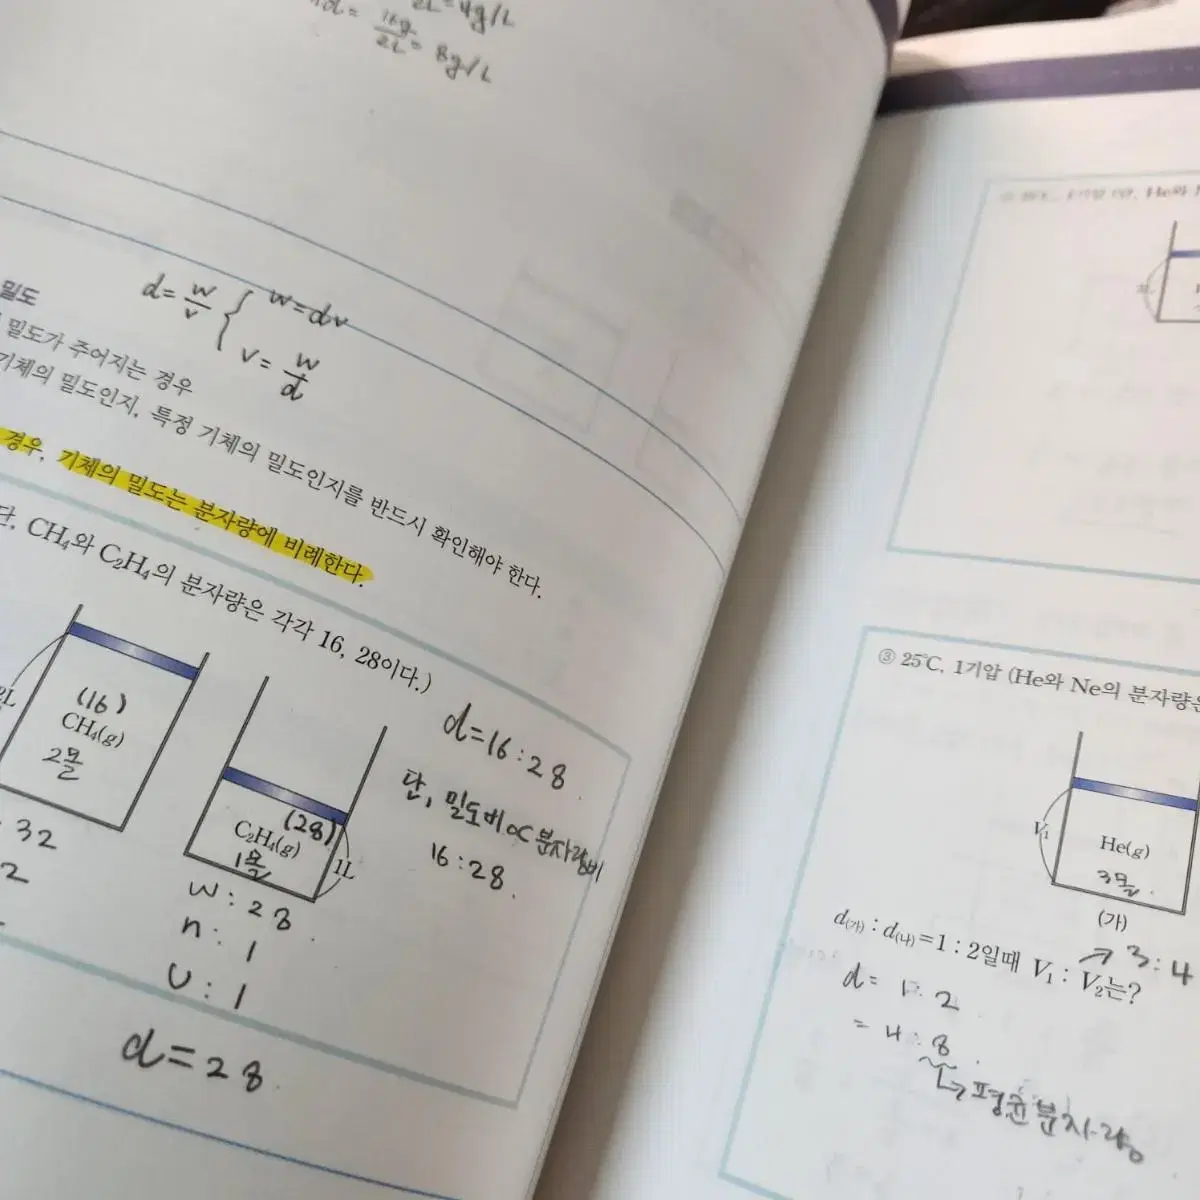 2L = 4g/L
d = 16g/2L = 8g/L
밀도
d = w/v { w = dv
v = w/d
밀도가 주어지는 경우
기체의 밀도인지, 특정 기체의 밀도인지를 반드시 확인해야 한다.
경우, 기체의 밀도는 분자량에 비례한다.
단, CH₄와 C₂H₄의 분자량은 각각 16, 28이다.)
(16)
CH₄(g)
2몰
32
2
(28)
C₂H₄(g)
1몰
1L
w : 28
n : 1
v : 1
d = 28
d = 16 : 28
단, 밀도비 ∝ 분자량비
16 : 28
③ 25℃, 1기압 (He와 Ne의 분자량은
V₁
He(g)
3몰
(가)
d(가) : d(나) = 1 : 2일때 V₁ : V₂는?
→ 3 : 4
d = 1 : 2
= 4 : 8
↳ 평균 분자량